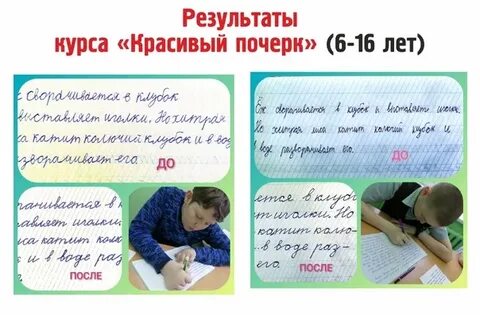 Результаты
курса «Красивый почерк» (6-16 лет)
с сворачивается в клубок
выставляет иголки. Но хитрая
са катит колючий клубок и в во
разворачивает его.
ДО
рачивается в к
тавляет иголки
иса катит колю
к и в воде раз
ПОСЛЕ
Ёж сворачивается в клубок и выставляет иголки.
Но хитрая лиса катит колючий клубок и
в воде разворачивает его.
ДО
ется в клубо
т иголки. Но
катит колю-
в воде раз-
его.
ПОСЛЕ